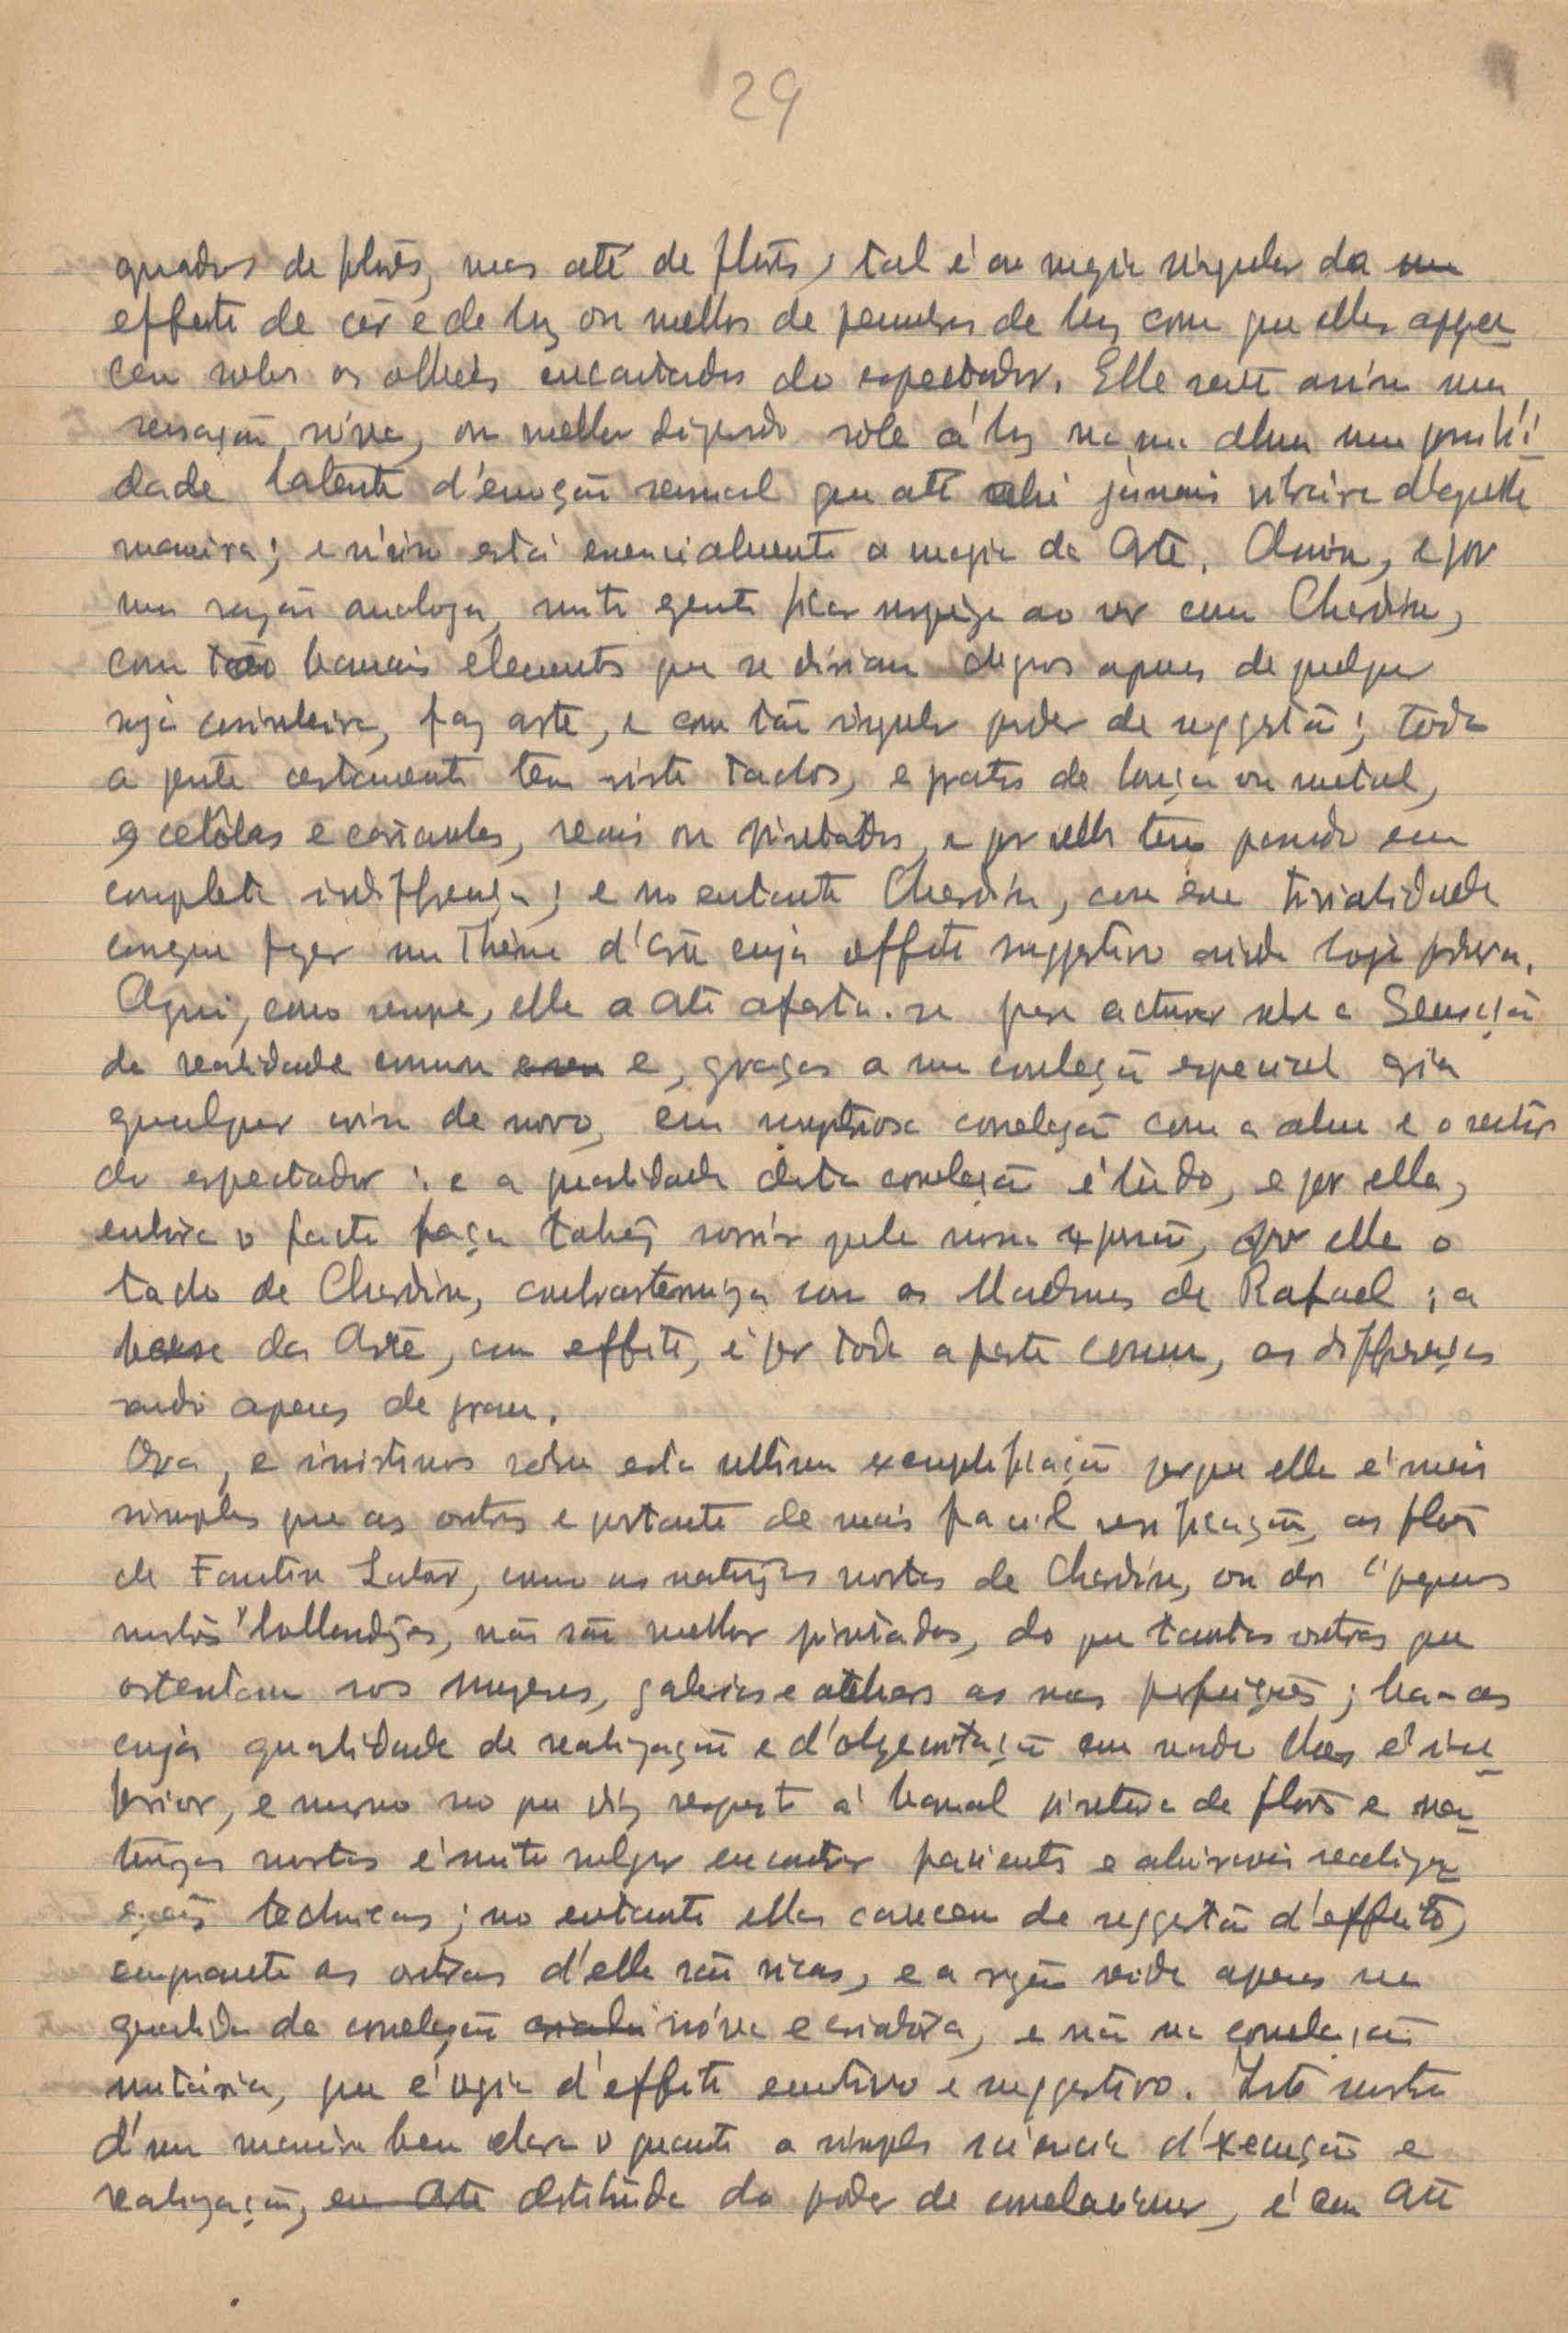 29
quadros de flôres, mas até de flôres, tal é a magia singular da
effeito de côr e de luz ou melhor de penumbra de luz com que ellas appare-
cem sobre os olhos encantados do espectador. Elle sente assim uma
sensação nóva, ou melhor dizendo sóbe á luz na sua alma uma possibili-
dade latente d'emoção sensual que até ahi jámais vibrára d'aquella
maneira; e n'isso está essencialmente a magia da Arte. Assim, e por
uma razão analoga, muita gente fica surpreza ao ver como Chardin,
com tão banais elementos que se diriam dignos apenas de qualquer
suja cosinheira, faz arte, e com tão singular poder de suggestão; toda
a gente certamente tem visto tachos, e pratos de louça ou metal,
e cebôlas e cenouras, reais ou pintados, e por elles tem passado em
completa indifferença; e no entanto Chardin, com essa trivialidade
consegue fazer um thema d'Arte cujo effeito suggestivo ainda hoje perdura.
Aqui, como sempre, elle a Arte afasta-se para actuar sobre a Sensação
da realidade comum e, graças a uma correlação especial cria
qualquer coisa de novo, em mysteriosa correlação com a alma e o sentir
do espectador: e a qualidade desta correlação é tudo, e por ella,
embora o facto faça talvez sorrir pela nossa expressão, por ella o
tacho de Chardin, confraterniza com as Madonas de Rafael; a
base da Arte, com effeito, é por toda a parte comum, as differenças
sendo apenas de grau.
Ora, e insistimos sobre esta ultima exemplificação porque ella é mais
simples que as outras e portanto de mais facil verificação, as flôres
de Fantin Latour, como as naturezas mortas de Chardin, ou dos "pequenos
mestres" hollandezes, não são melhor pintadas, do que tantas outras que
ostentam nos muzeus, galerias e ateliers as suas perfeições; ha-as
cuja qualidade de realização e d'objectação em nada lhes é infe-
rior, e mesmo no que diz respeito á banal pintura de flôres e na-
turezas mortas é muito vulgar encontrar pacientes e admiraveis realiza-
ções technicas; no entanto ellas carecem de suggestão d'effeito,
emquanto as outras d'elle são ricas, e a razão reside apenas na
qualidade da correlação nóva e criadora, e não na correlação
mutária, que é vazia d'effeito emotivo e suggestivo. Isto mostra
d'uma maneira bem clara o quanto a simples sciencia d'execução e
realização, destituida do poder de correlacionar, é em Arte